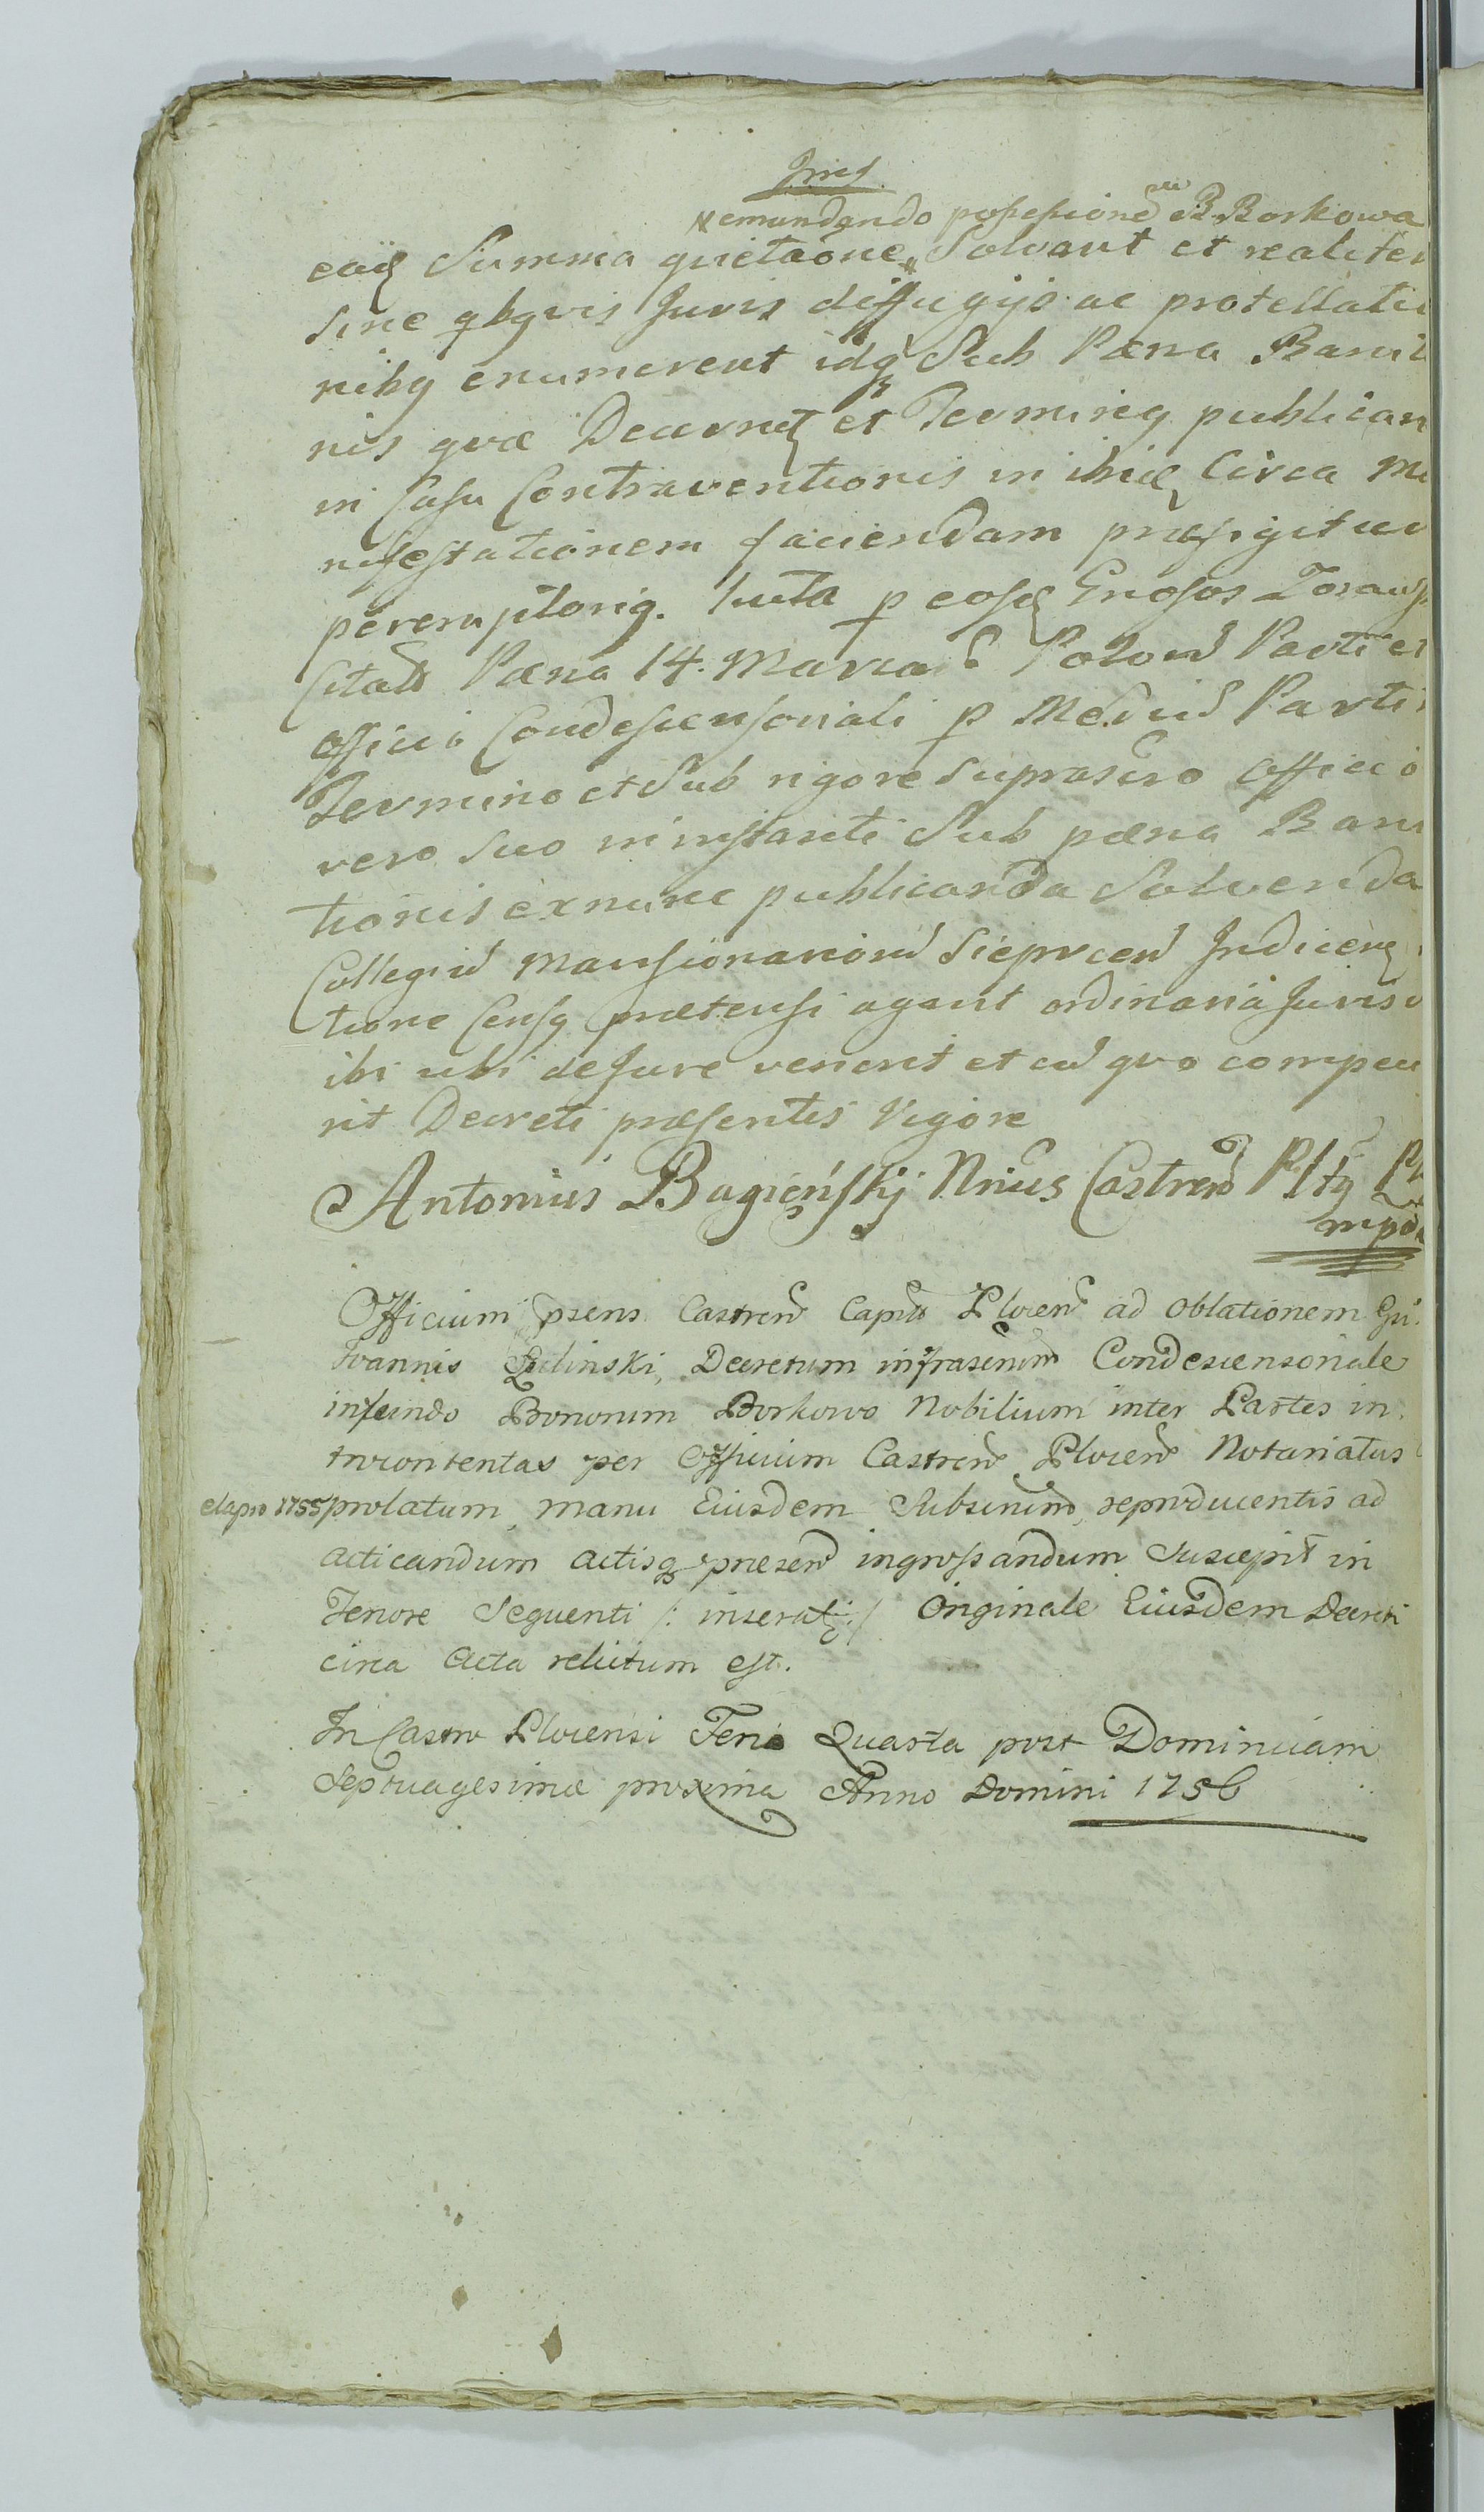 emundando possessione B. Borkowa
eaq Summa quietaõne Solvant et realiter
Sine qbqvis Juris diffugijs ac protellatio
nibq enumerent idq Sub Pæna Banit
nis qvæ Decernet et Terminq publican
in Casu Contraventionis in ibid Circa Ma
nifestationem faciendam præfigitur
peremptoriq. Iuxta p eosd Gnosos
Citatt Pæna 14. Marcar Polon Parti et
officio Condescensoriali p Mediet Parti
Termino et Sub rigore suprascro Officio
vero Suo in instanti Sub pæna Bani
tionis exnunc publicanda Solvenda
Collegiu Mansionarioru Sieprcen Indicen
tione Censq prætensi agant ordinaria Juris v
ibi ubi de Jure venerit et cu qvo compeu
rit Decreti præsentis Vigore
Antonius Bagieński Nrius Castren Pltq
mpa
Officium psens Castren Capitt Plocen ad Oblationem Gn.
Ioannis Zulinski, Decretum infrascriptu Condescensoriale
in fundo Bonorum Borkowo Nobilium inter Partes in
introcontentas per Officium Castren Plocen Notariatus
elapso 1755 prolatum, manu Eiusdem Subscriptu, reproducentis ad
acticandum actisq præsen ingrossandum Suscepit in
Tenore Sequenti /: inseratr :/ Originale Eiusdem Decreti
circa Acta relictum est.
In Castro Plocensi Feria Quarta post Dominicam
Septuagesimæ proxima Anno Domini 1756